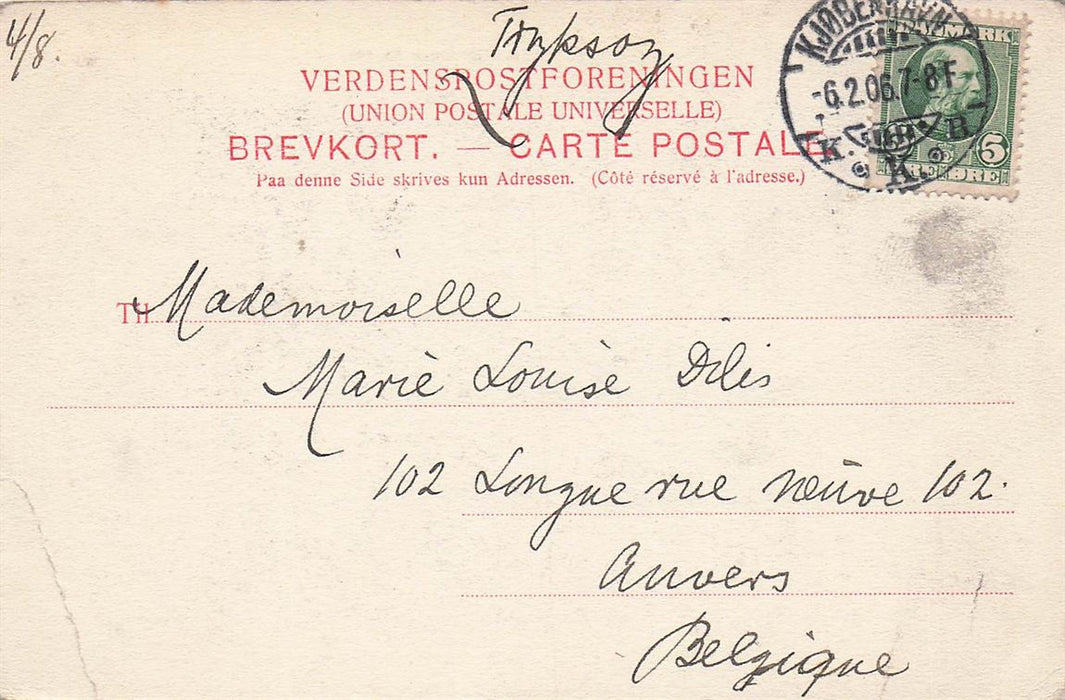 4/8.
Tryksag
VERDENSPOSTFORENINGEN
(UNION POSTALE UNIVERSELLE)
BREVKORT. — CARTE POSTALE.
Paa denne Side skrives kun Adressen. (Côté réservé à l'adresse.)
KJØBENHAVN
-6.2.06. 7-8 F.
K. K. B.
DANMARK
5
ØRE ØRE
Til Mademoiselle
Marie Louise Dilis
102 Longue rue neuve 102.
Anvers
Belgique